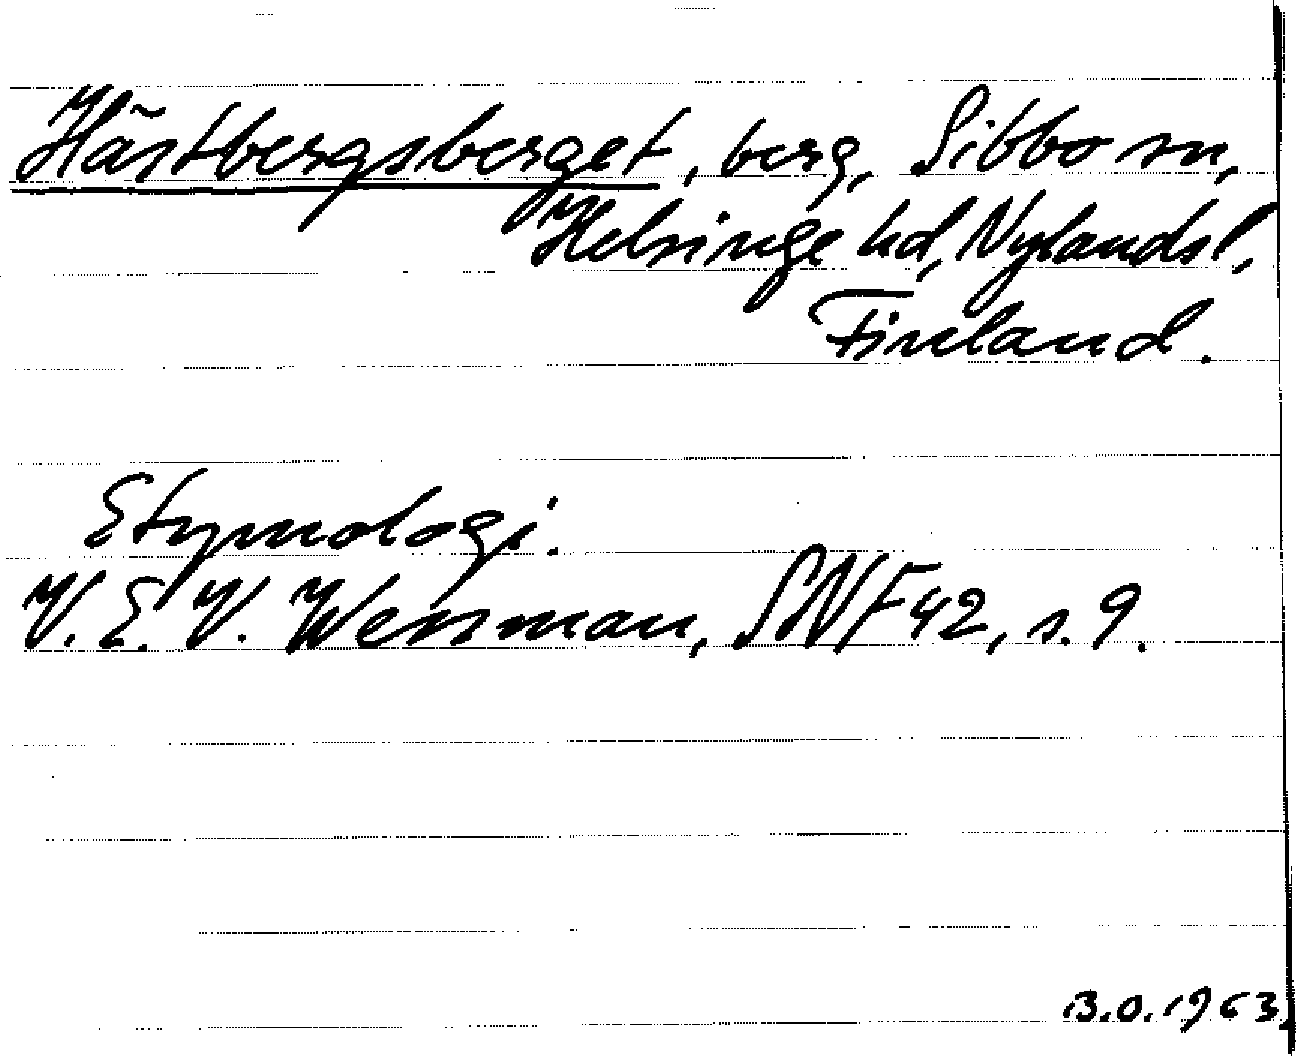 Hästbergsberget, berg, Sibbo sn,
Helsinge hd, Nylands l,
Finland.
Etymologi.
V. E. V. Wessman, SNF 42, s. 9.
B.O. 1963.